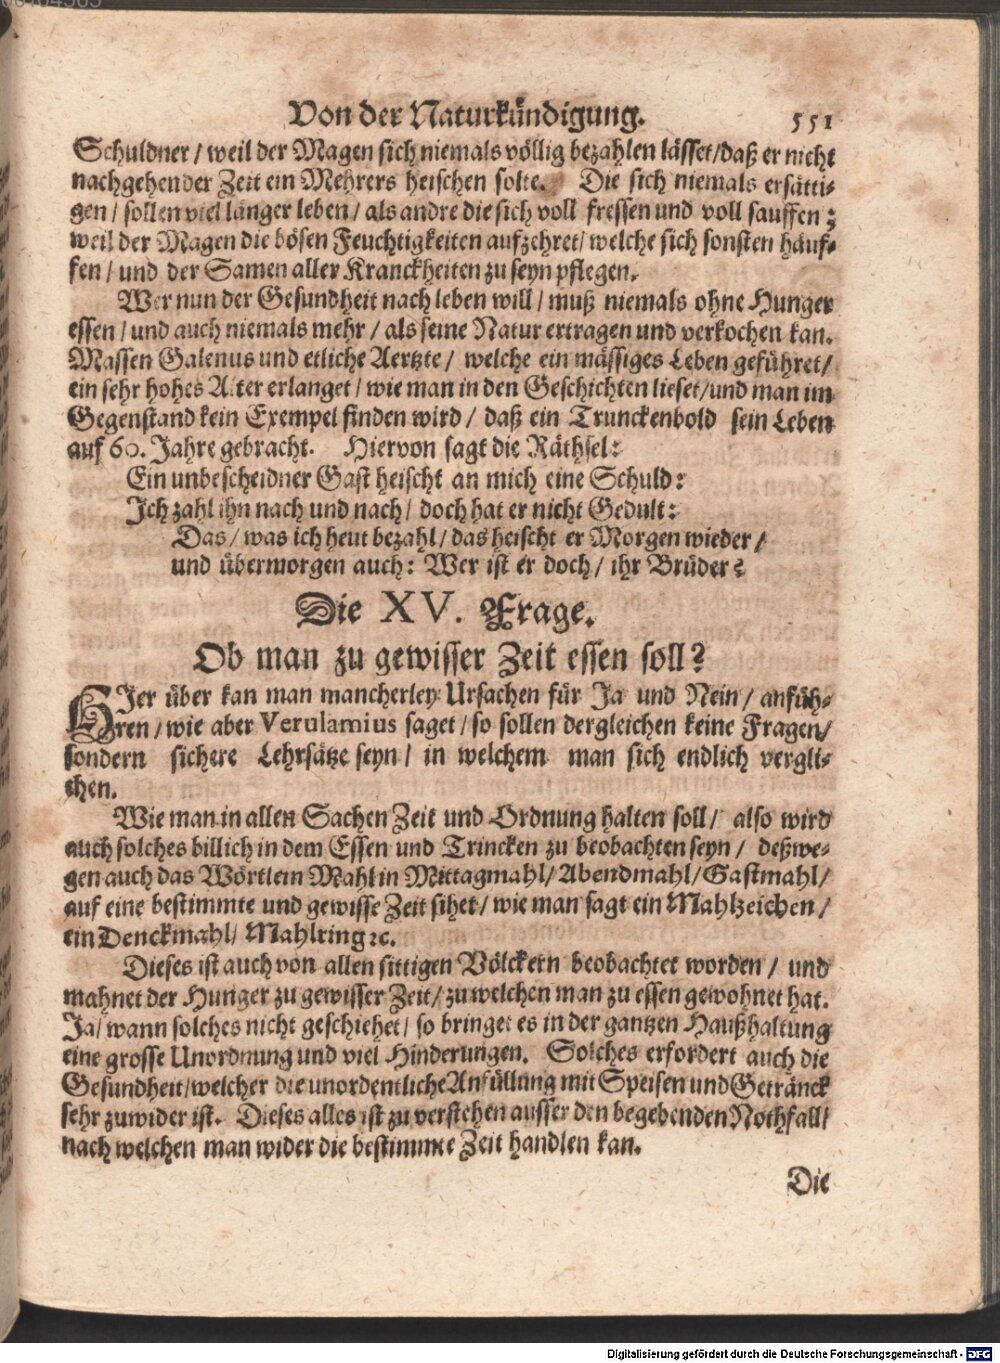 Von der Naturkündigung. 551
Schuldner / weil der Magen sich niemals völlig bezahlen lässet/daß er nicht
nachgehender Zeit ein Mehrers heischen solte. Die sich niemals ersätti-
gen / sollen viel länger leben / als andre die sich voll fressen und voll sauffen;
weil der Magen die bösen Feuchtigkeiten aufzehret/ welche sich sonsten häuf-
fen / und der Samen aller Kranckheiten zu seyn pflegen.
Wer nun der Gesundheit nach leben will / muß niemals ohne Hunger
essen / und auch niemals mehr / als seine Natur ertragen und verkochen kan.
Massen Galenus und etliche Aertzte / welche ein mässiges Leben geführet/
ein sehr hohes Alter erlanget / wie man in den Geschichten lieset/und man im
Gegenstand kein Exempel finden wird / daß ein Trunckenbold sein Leben
auf 60. Jahre gebracht. Hiervon sagt die Räthsel:
Ein unbescheidner Gast heischt an mich eine Schuld:
Ich zahl ihn nach und nach / doch hat er nicht Gedult:
Das / was ich heut bezahl / das heischt er Morgen wieder /
und übermorgen auch: Wer ist er doch / ihr Brüder?
Die XV. Frage.
Ob man zu gewisser Zeit essen soll?
HJer über kan man mancherley Ursachen für Ja und Nein / anfüh-
ren / wie aber Verulamius saget / so sollen dergleichen keine Fragen/
sondern sichere Lehrsätze seyn / in welchem man sich endlich vergli-
chen.
Wie man in allen Sachen Zeit und Ordnung halten soll / also wird
auch solches billich in dem Essen und Trincken zu beobachten seyn / deßwe-
gen auch das Wörtlein Mahl in Mittagmahl/ Abendmahl/ Gastmahl/
auf eine bestimmte und gewisse Zeit sihet / wie man sagt ein Mahlzeichen /
ein Denckmahl/ Mahlring ꝛc.
Dieses ist auch von allen sittigen Völckern beobachtet worden / und
mahnet der Hunger zu gewisser Zeit / zu welchen man zu essen gewohnet hat.
Ja/ wann solches nicht geschiehet / so bringet es in der gantzen Haußhaltung
eine grosse Unordnung und viel Hinderungen. Solches erfordert auch die
Gesundheit/welcher die unordentliche Anfüllung mit Speisen und Getränck
sehr zuwider ist. Dieses alles ist zu verstehen ausser den begebenden Nothfall/
nach welchen man wider die bestimmte Zeit handlen kan.
Die
Digitalisierung gefördert durch die Deutsche Forschungsgemeinschaft - DFG